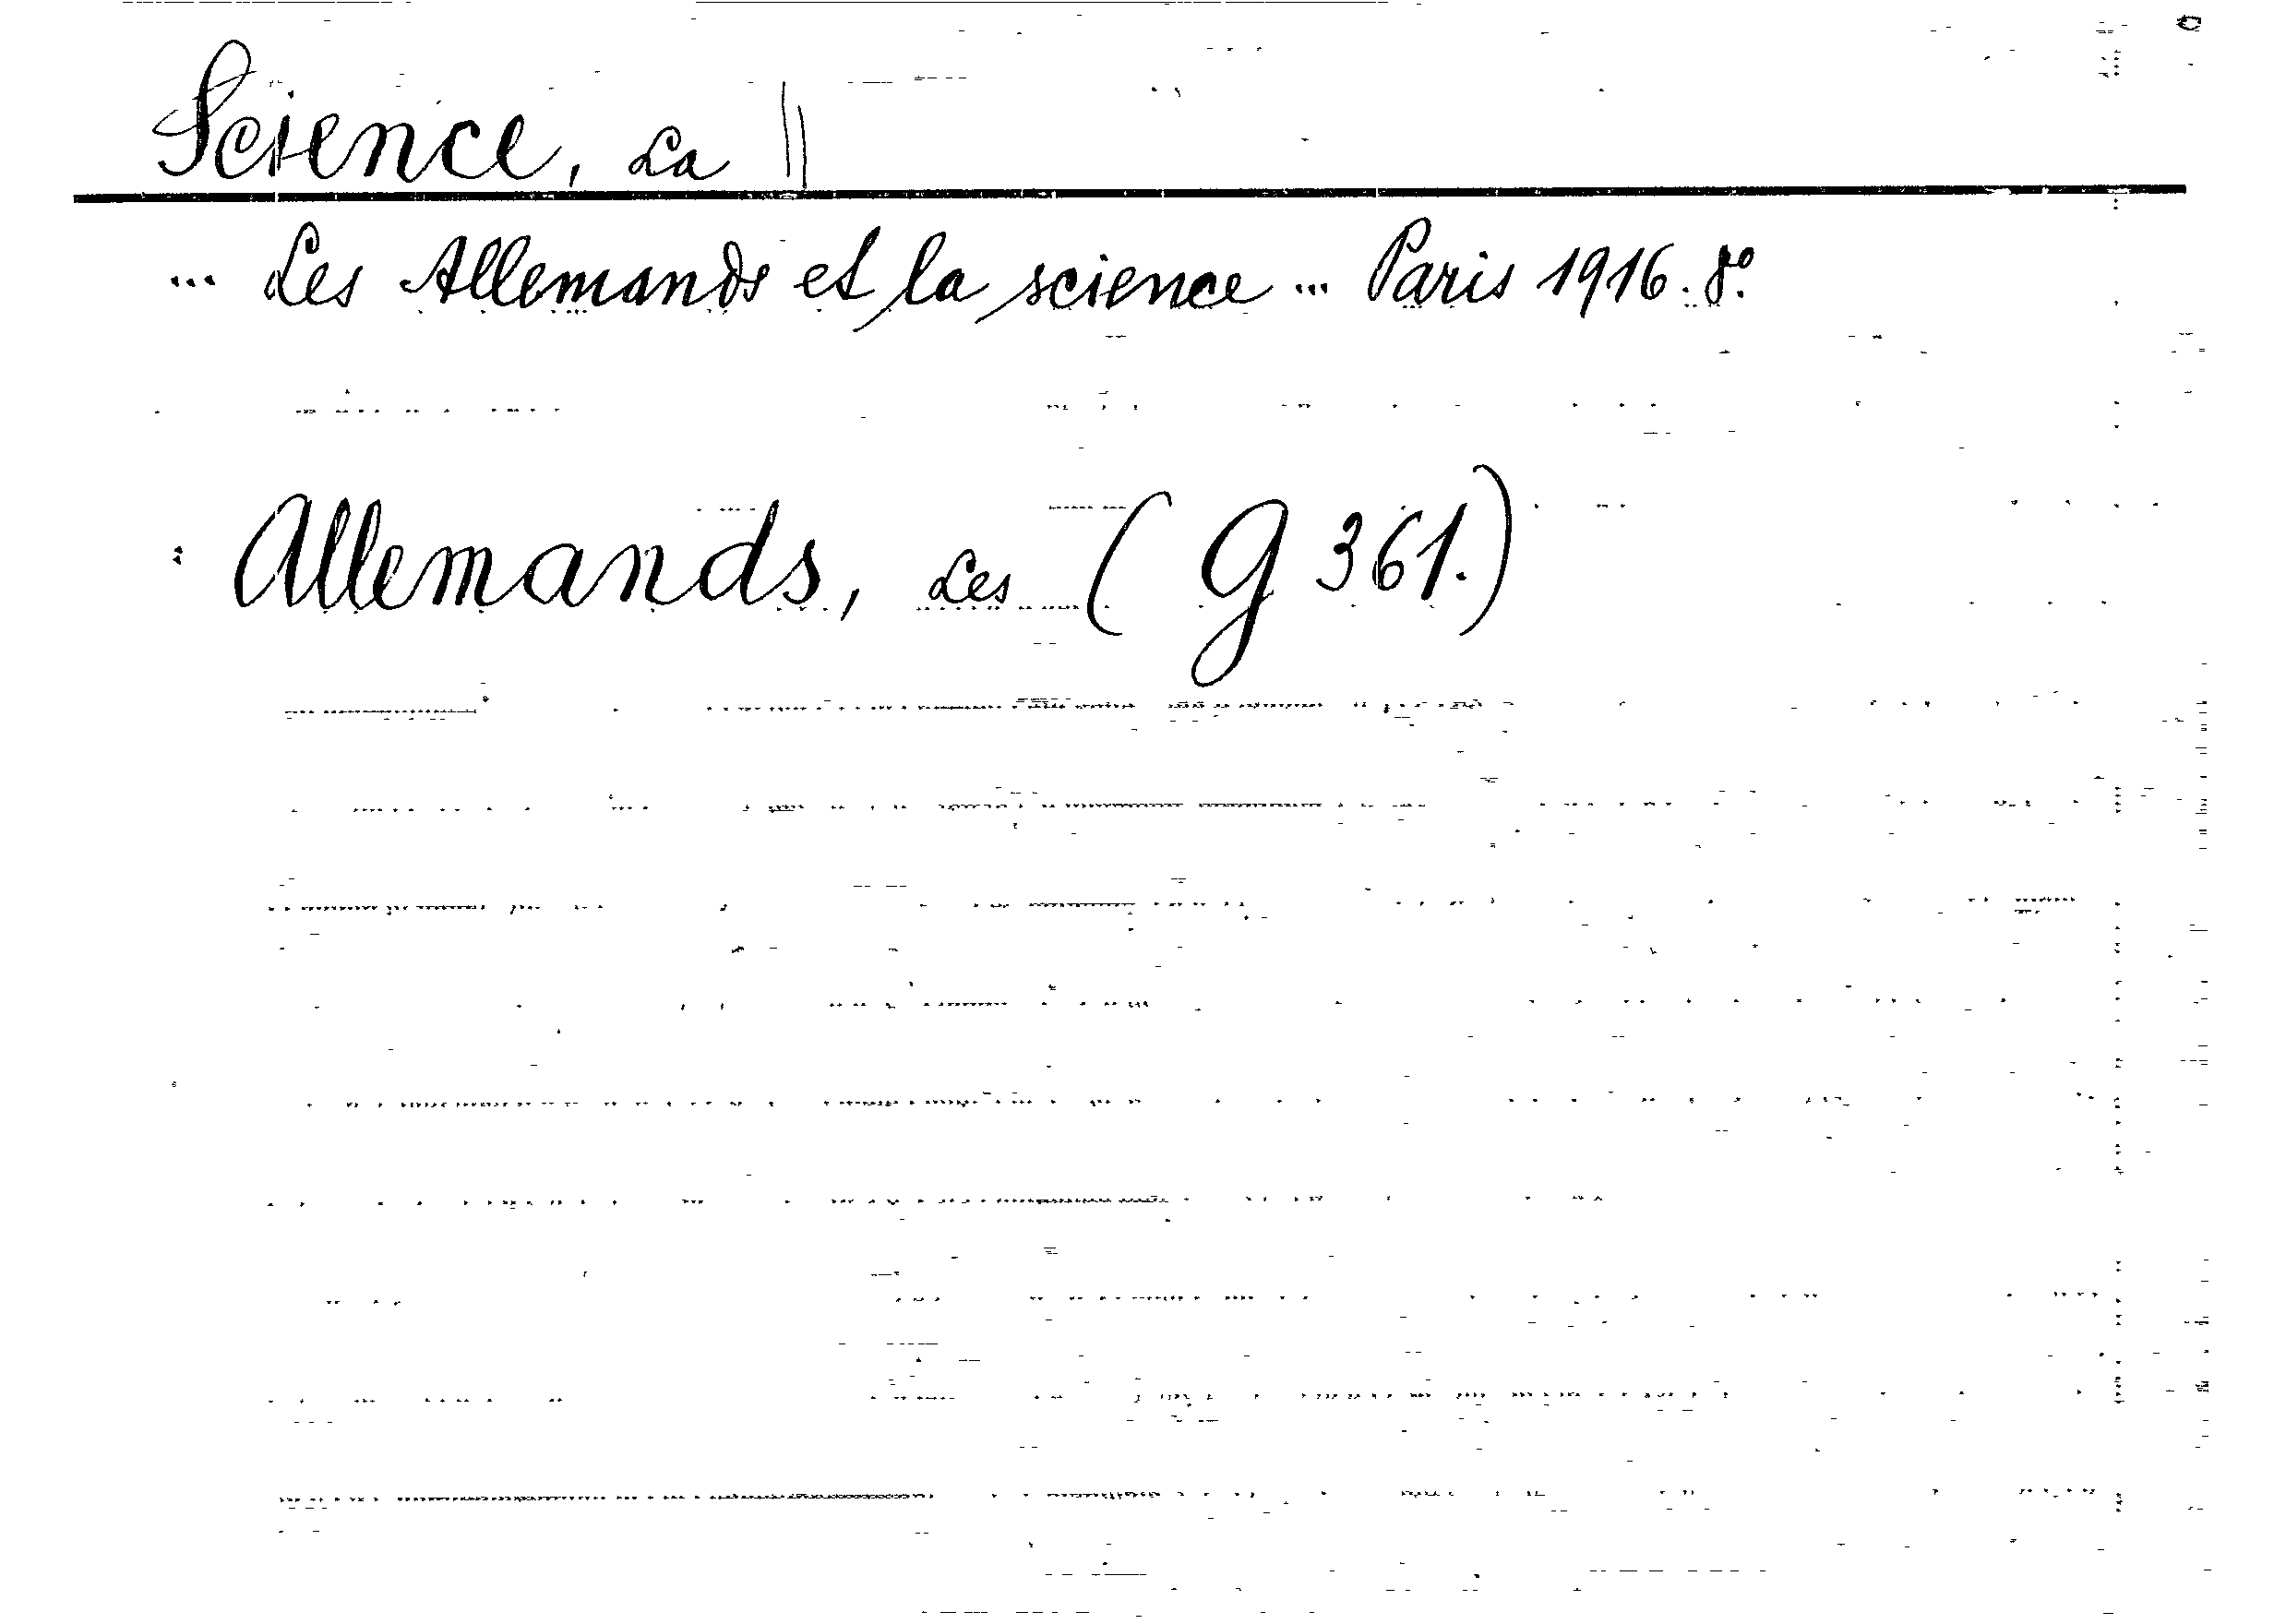 Science, La ||
... Les Allemands et la science ... Paris 1916. 8º.
: Allemands, Les (G 361.)